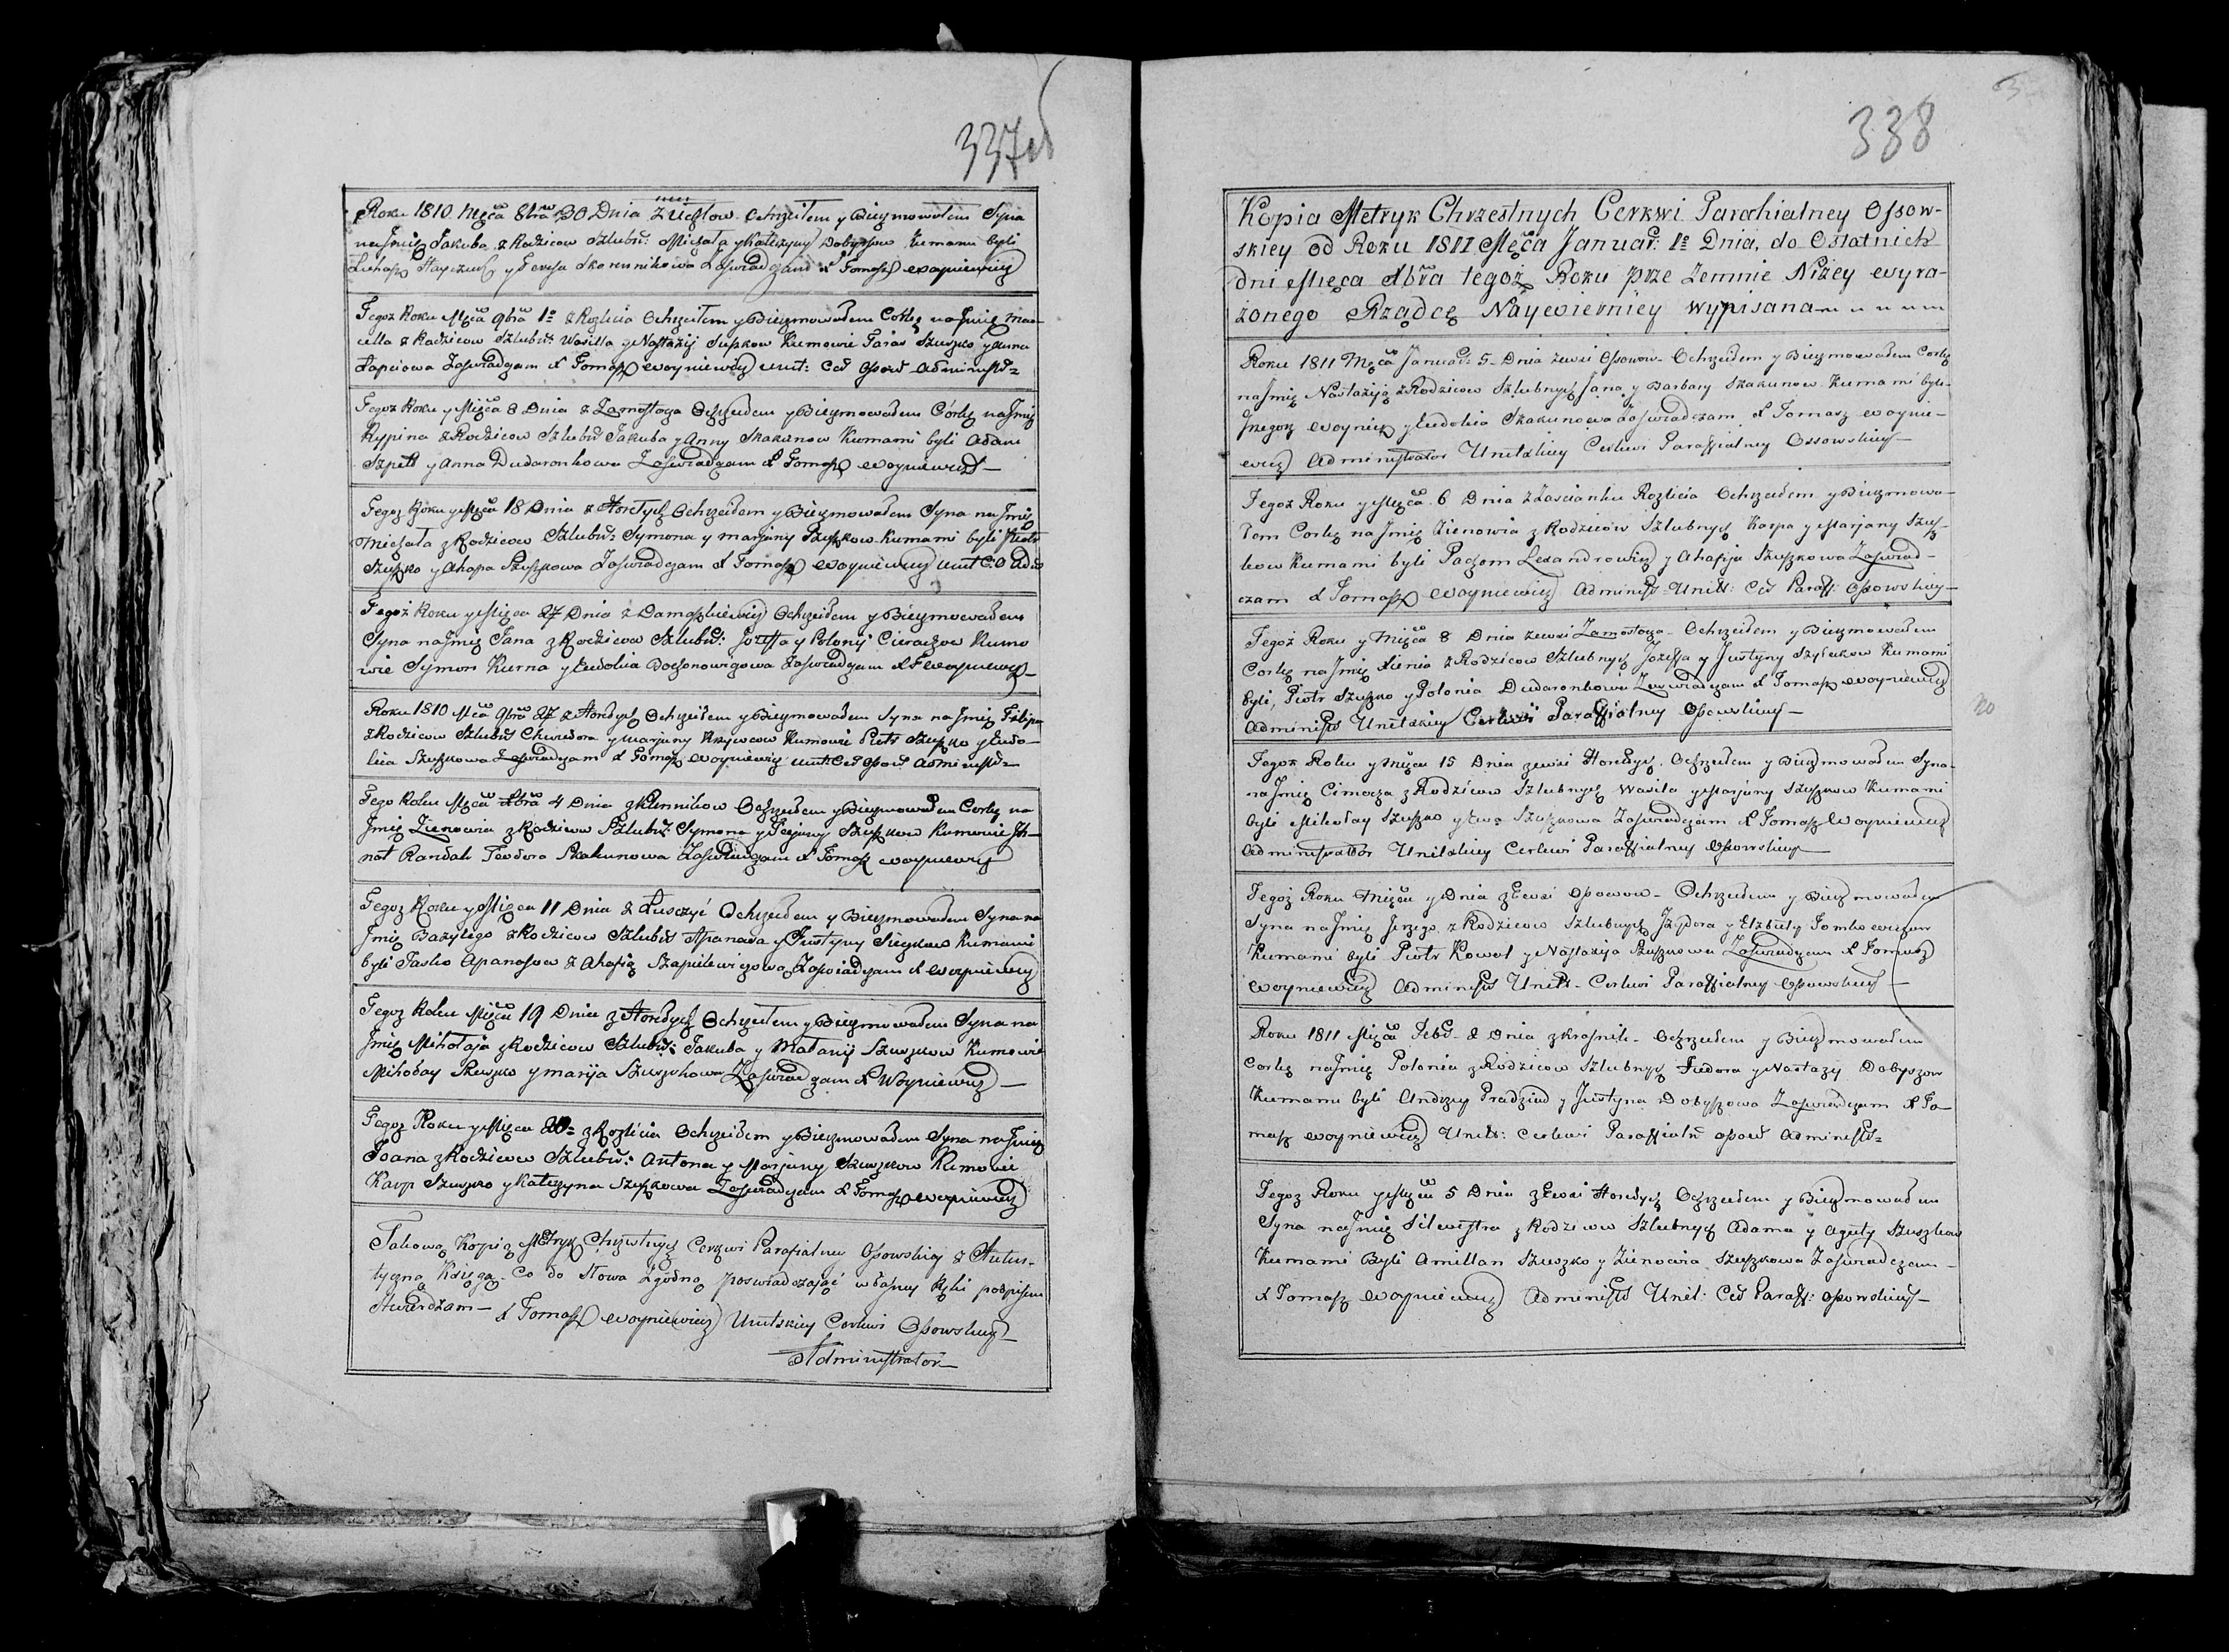 337об
Roku 1810 Mę̃ca 8bra 30 Dnia z Uczłow Ochrzciłem y Bierzmowałem Syna
na Jmię Jakuba z Rodzicow Szlubn: Michała y Katerzyny Dobyszow Kumami byli
Łukasz y Teresa Skorennikowa Zaswiadczam X Tomasz Woyniewicz
Tegoż Roku Mę̃ca 9bra 1o z Rozlicia Ochrzciłem y Bierzmowałem Corkę na Jmię Mar-
cella z Rodzicow Szlubn: Wasilla y Nastazij Suszkow Kumowie Taras Szuszko y Anna
Łapciowa Zaswiadczam X Tomasz Woyniewicz Unit: Cer Osow Administr=
Tegoż Roku y Mięca 8 Dnia z Zamostoza Ochrzciłem y Bierzmowałem Córkę na Jmię
Kypina z Rodzicow Szlubn Jakuba y Anny Skakunow Kumami byli Adam
Szpett y Anna Dudaronkowa Zaswiadczam X Tomasz Woyniewicz—
Tegoż Roku y Mę̃ca 18 Dnia z Horełych Ochrzciłem y Bierzmowałem Syna na Jmię
Michała z Rodzicow Szlubn: Symona y Marjany Szuszkow Kumami byli Piotr
Szuszko y Ahapa Szuszkowa Zaswiadczam X Tomasz Woyniewicz Unit C: O Adm
Tegoż Roku y Mięca 27 Dnia z Damaszkiewicz Ochrzciłem y Bierzmowałem
Syna na Jmię Jana z Rodzicow Szlubn: Jozeffa y Polonij Cieraszow Kumo
wie Symon Kurna y Eudokia Bochonowiczowa Zaswiadczam X T Woyniewicz—
Roku 1810 Mę̃ca 9bra 27 z Horełych Ochrzciłem y Bierzmowałem Syna na Jmię Filipa
z Rodzicow Szlubn Chwedora y Marjany Krzywcow Kumowie Piotr Szuszko y Eudo—
kia Szuszkowa Zaswiadczam X Tomasz Woyniewicz Unit: Cer Osow Administr=
Tego Roku Mę̃ca Xbra 4 Dnia z Klennikow Ochrzciłem y Bierzmowałem Corkę na
Jmię Zienowia z Rodzicow Szlubn: Symona y Szuszkow Kumowie Jh—
nat Randak Teodora Skakunowa Zaswiadczam X Tomasz Woyniewicz
Tegoż Roku y Mięca 11 Dnia z Łusczyć Ochrzciłem y Bierzmowałem Syna na
Jmię Bazylego z Rodzicow Szlubn Apanasa y Justyny Kumami
byli Jasko Apanasow z Ahafią Szapielewiczową Zaswiadczam X Woyniewicz
Tegoż Roku Mięca 19 Dnia z Horełych Ochrzciłem y Bierzmowałem Syna na
Jmię Mikołaja z Rodzicow Szlubn: Jakuba y Matanij Szuszkow Kumowie
Mikołay Szuszko y Marija Szuszkowa Zaswiadczam X Woyniewicz—
Tegoż Roku y Mięca 20= z Rozlicia Ochrzciłem y Bierzmowałem Syna na Jmię
Joana z Rodzicow Szlubn: Antona y Marjany Szuszkow Kumowie
Karp Szuszko y Katerzyna Szuszkowa Zaswiadczam X Tomasz Woyniewicz
Takową Kopią Metryk Chrzestnych Cerkwi Parafialney Osowskiey z Auten-
tyczną Księgą Co do Słowa Zgodną poswiadczając własney Ręki podpisem
Stwierdzam— X Tomasz Woyniewicz Unitskiey Cerkwi Osowskiey—
Administrator—
338
Kopia Metryk Chrzestnych Cerkwi Parahialney Ossow-
skiey od Roku 1811 Mę̃ca Januar: 1o Dnia, do Ostatnich
dni Mięca Xbra tegoż Roku prze Zemnie Niżey wyra-
żonego Rządcę Naywierniey wypisana
Roku 1811 Mę̃ca Januar: 5 Dnia zewsi Ossowow Ochrzciłem y Bierzmowałem Corkę
na Jmię Nastaziją z Rodzicow Szlubnych Jana y Barbary Skakunow Kumami byli
Grzegorz Woynicz y Eudokia Skakunowa Zaswiadczam X Tomasz Woynie-
wicz Administrator Unitskiey Cerkwi Paraffialney Ossowskiey—
Tegoż Roku y Mę̃ca 6 Dnia z Zascianku Rozlicia Ochrzciłem y Bierzmowa-
łem Corkę na Jmię Zienowia z Rodzicow Szlubnych Karpa y Marjany Szusz-
kow Kumami byli Paczom Lexandrowicz y Ahafija Szuszkowa Zaswiad-
czam X Tomasz Woyniewicz Administr Unitt: Cer Paraff: Osowskiey—
Tegoż Roku y Mię̃ca 8 Dnia zewsi Zamostoza Ochrzciłem y Bierzmowałem
Corkę na Jmię Xienia z Rodzicow Szlubnych Jozeffa y Justyny Kumami
byli, Piotr Szuszko y Polonia Dudaronkowa Zaswiadczam X Tomasz Woyniewicz
Administr Unitskiey Cerkwi Paraffialney Osowskiey—
Tegoż Roku y Mięca 15 Dnia zewsi Horełych Ochrzciłem y Bierzmowałem Syna
na Jmię Cimocza z Rodzicow Szlubnych Wasila y Marjany Szuszkow Kumami
byli Mikołay Szuszko y Ewa Szuszkowa Zaswiadczam X Tomasz Woyniewicz
Administrator Unitskiey Cerkwi Paraffialney Osowskiey—
Tegoż Roku Mięca y Dnia zewsi Osowow Ochrzciłem y Bierzmowałem
Syna na Jmię Jerzego z Rodzicow Szlubnych Jzydora y Elżbiety Tomkowiczow
Kumami byli Piotr Kowal y Nastazija Szuszkowa Zaswiadczam X Tomasz
Woyniewicz Administr Unitt- Cerkwi Paraffialney Osowskiey—
Roku 1811 Mię̃ca Febr- 2 Dnia z Krasnik- Ochrzciłem y Bierzmowałem
Corkę na Jmię Polonia z Rodzicow Szlubnych Fiedora y Nastazij Dobyszow
Kumami byli Andrzey Pradziad y Justyna Dobyszowa Zaswiadczam X To-
masz Woyniewicz Unitt: Cerkwi Paraffialn Osow Administr=
Tegoż Roku y Mię̃ca 5 Dnia zewsi Horełych Ochrzciłem y Bierzmowałem
Syna na Jmię Silwestra z Rodzicow Szlubnych Adama y Aguty Szuszkow
Kumami Byli Amillan Szuszko y Zienowia Szuszkowa Zaswiadczam—
X Tomasz Woyniewicz Administr Unit: Cer Paraff: Osowskiey—
20